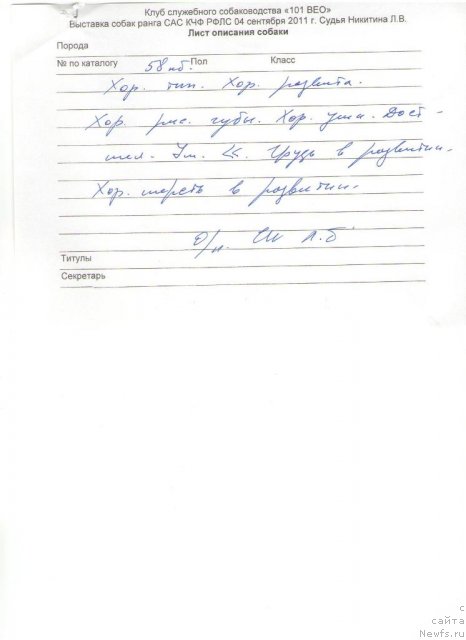 Клуб служебного собаководства «101 ВЕО»
Выставка собак ранга САС КЧФ РФЛС 04 сентября 2011 г. Судья Никитина Л.В.
Лист описания собаки
Порода
№ по каталогу 58 Пол Класс
Хор. тип. Хор. развита.
Хор. губы. Хор. уши. Дост-
Грудь в развитии.
Хор. шерсть в развитии.
О/п.
Титулы
Секретарь
с
сайта
Newfs.ru